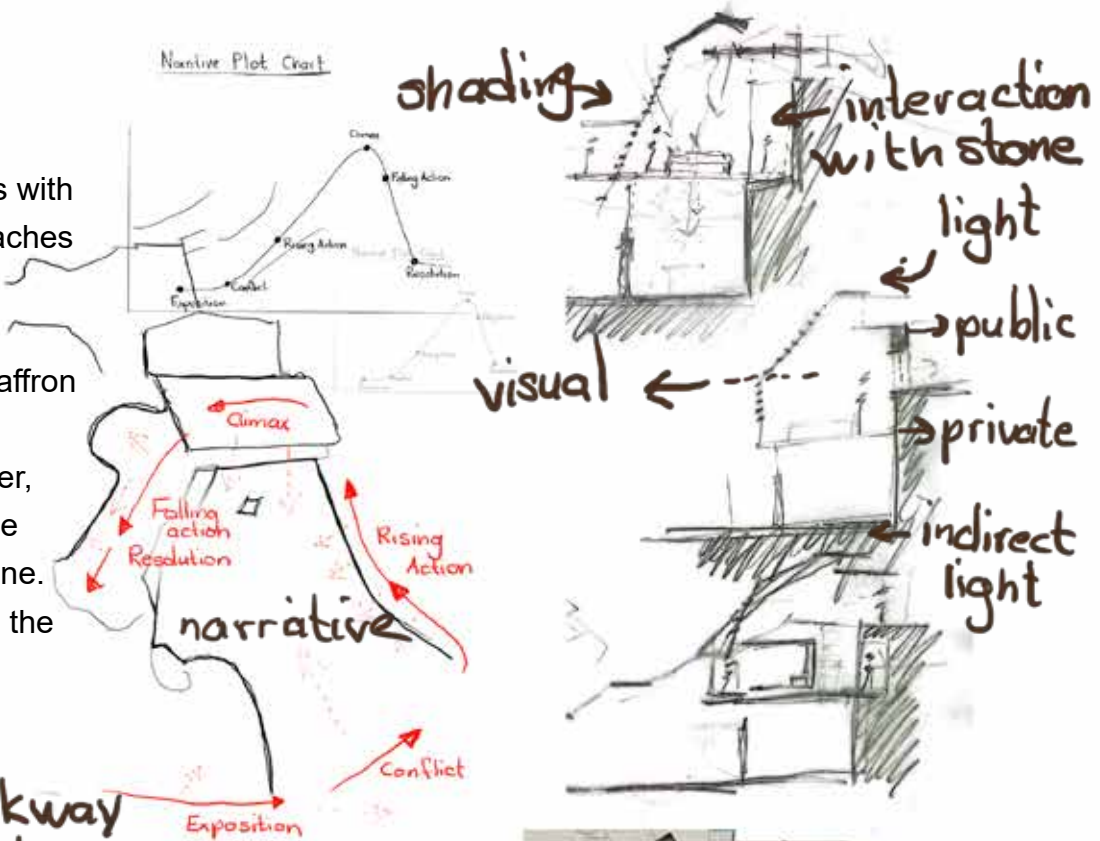 Narritive Plot Chart
Climax
Falling Action
Rising Action
Resolution
Conflict
Exposition
s with
aches
affron
er,
e
ne.
the
Climax
Falling
action
Resolution
Rising
Action
narrative
Conflict
Exposition
kway
shading
interaction
with stone
light
public
visual
private
indirect
light